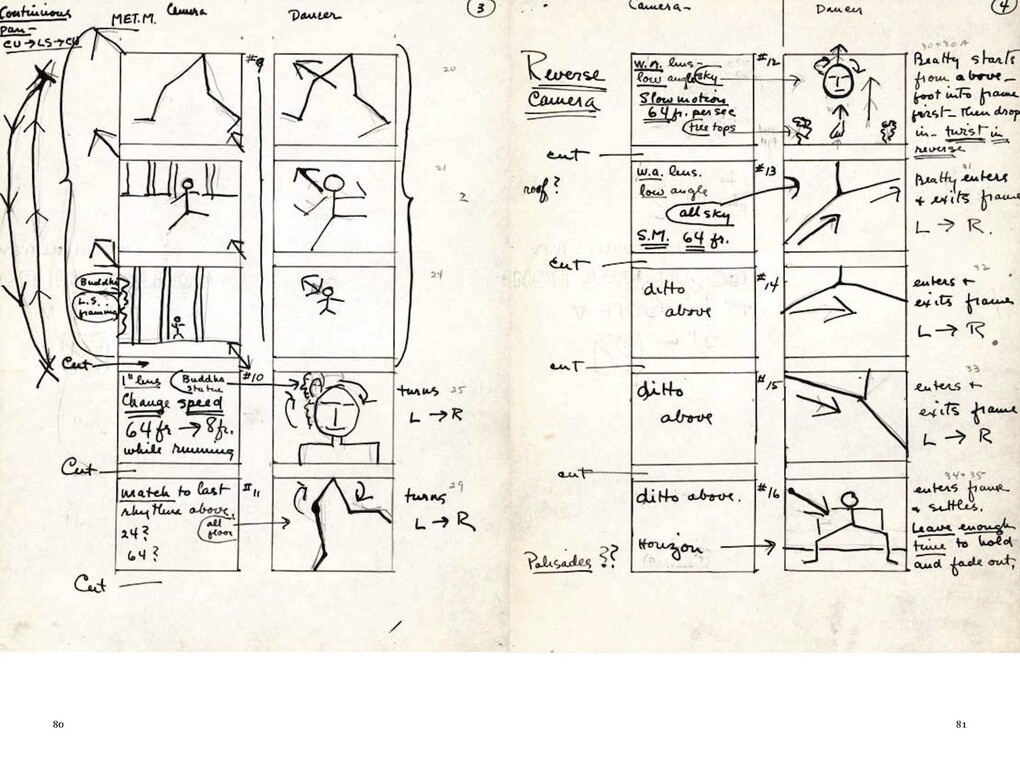 Continuous
pan-
CU → LS → CU
MET. M.
Camera
Dancer
3
#9
20
21
2
24
Buddha
L.S.
framing
Cut
#10
1" lens
Buddha
statue
Change speed
64 fr → 8 fr.
while running
turns 25
L → R
Cut
#11
match to last
rhythm above.
24?
64?
all
floor
turns 29
L → R
Cut
80
Camera-
Dancer
4
Reverse
Camera
#12
w.a. lens-
low angle
sky
Slow motion
64 fr. per sec
tree tops
30+30A
Beatty starts
from above-
foot into frame
first- then drop
in- twist in
reverse
cut
roof?
#13
w.a. lens.
low angle
all sky
S.M. 64 fr.
31
Beatty enters
+ exits frame
L → R.
Cut
#14
ditto
above
32
enters +
exits frame
L → R
cut
#15
ditto
above
33
enters +
exits frame
L → R
cut
#16
ditto above.
Horizon
Palisades ??
34+35
enters frame
+ settles.
Leave enough
time to hold
and fade out,
81